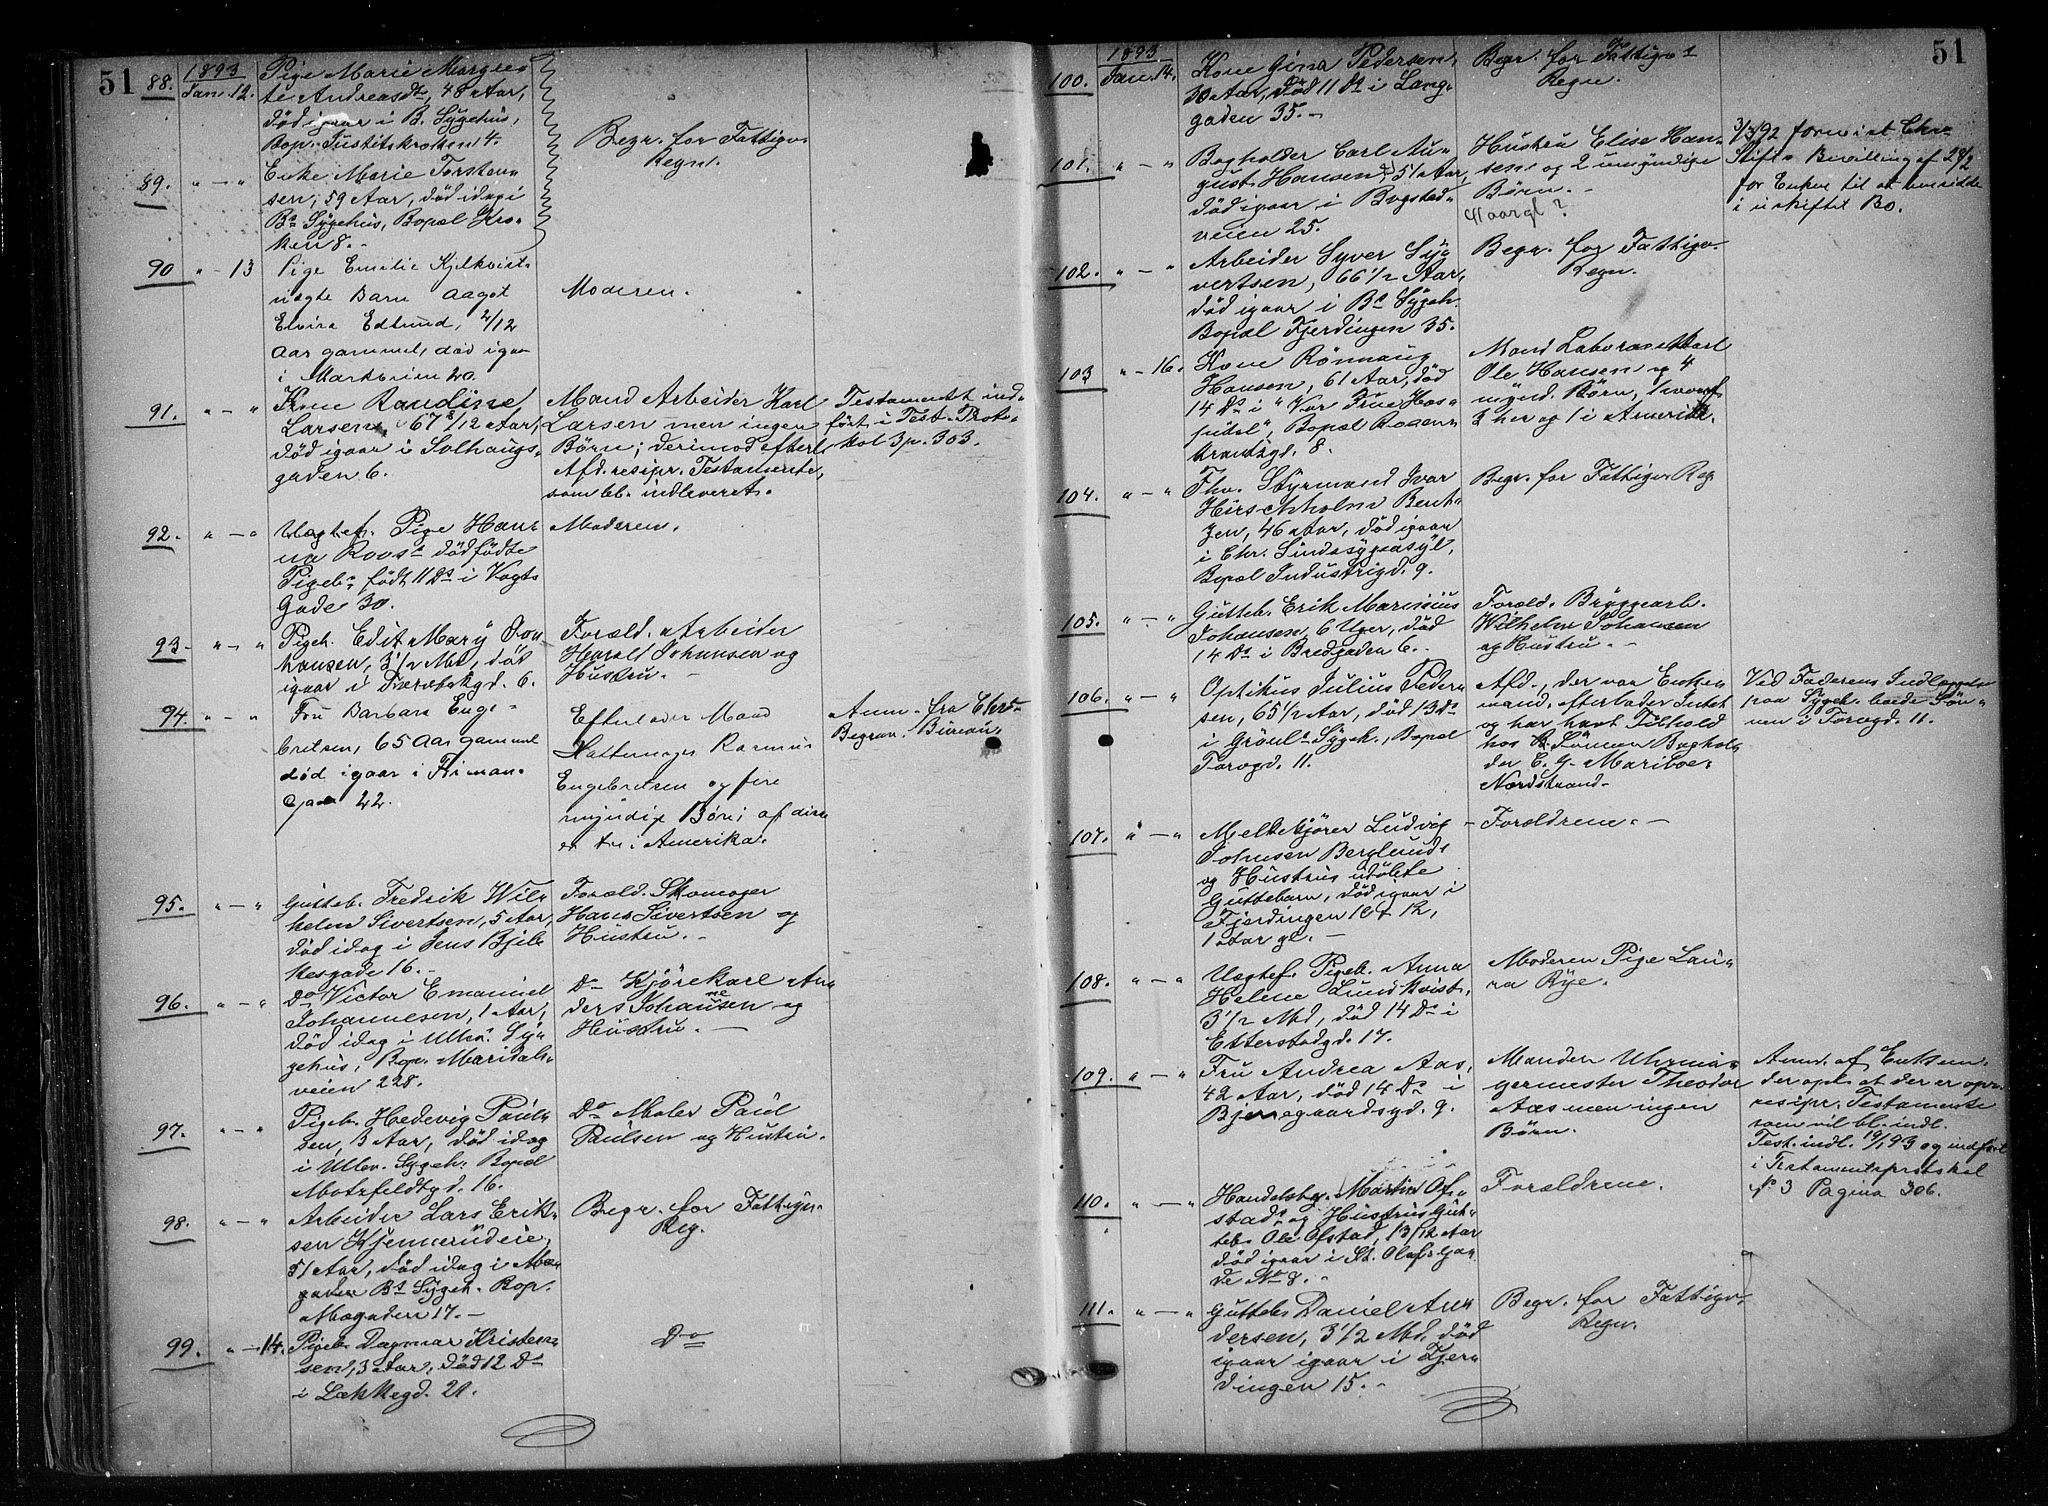 51
1893
88. Jan. 12.
Pige Marie Margre
te Andreasdt, 48 Aar,
död igaar i B. Sygehus,
Bop. Justitskroken 4.
Begr. for Fattigv.
Regn.
89. " — "
Enke Marie Torsten
sen, 59 Aar, död idag i
Bs Sygehus, Bopæl Kro
ken 8. -
90 " - 13
Pige Emilie Kjelkvists
uægte Barn Aagot
Elvira Edlund, 2/12
Aar gammel, död igaar
i 20.
Moderen.
91. " — "
Kone Randine
Larsen, 67 8/12 Aar,
död igaar i Solhaugs-
gaden 6.
Mand Arbeider Karl
Larsen men ingen
Börn; derimod efterl.
Afd. resipr. Testamente,
som bl. indleveret.
Testamentet ind-
fört i Test. Proto-
kol 3 p. 303.
92. " — "
Uægtef. Pige Han-
na Roos's dödfödte
Pigeb. födt 11 Ds i Vogts
Gade 30.
Moderen.
93 - " — "
Pigeb. Edit Mary Jo
hansen, 3 1/2 Md, död
igaar i gd. 6.
Foræld. Arbeider
Harald Johansen og
Hustru. -
94. " — "
Fru Barbara Enge-
bretsen, 65 Aar gammel
död igaar i Friman.
22.
Efterlader Mand
Hattemager Rasmus
Engebretsen og fire
myndige Börn; af disse
er to i Amerika.
Anm. fra Chra
Begrav. Bureau.
95. " — "
Gutteb. Fredrik Wil-
helm Sivertsen, 5 Aar,
död idag i Jens Bjel-
kesgade 16. -
Foræld. Skomager
Hans Sivertsen og
Hustru. -
96. " — "
Do Victor Emanuel
Johannesen, 1 Aar,
död idag i Ullev. Sy-
gehus, Bop. Maridals-
veien 228.
Do Kjörekarl An-
ders Johannesen og
Hustru. -
97. " — "
Pigeb. Hedevig Paul-
sen, 3 Aar, död idag
i Ullev. Sygeh. Bopæl
Motzfeldtgd. 16.
Do Maler Paul
Paulsen og Hustru.
98. " — "
Arbeider Lars Erik-
sen Kjennerudeie,
51 Aar, död idag i
Bs Sygeh. Bop.
Møgaden 17. -
Begr. for Fattigv.
Reg.
99. " - 14.
Pigeb. Dagmar Kristen-
sen, 3 Aar, död 12 Ds
i Lakkegd. 21.
Do
51
1893
100. Jan. 14.
Kone Gina Pedersen,
30 Aar, död 11 Ds i Lang-
gaden 35. -
Begr. for Fattigv.
Regn.
101. " — "
Bogholder Carl Au-
gust Hansen, 51 Aar,
död igaar i Bogstad-
veien 25.
Hustru Elise Han-
sen og 2 umyndige
Börn. -
3/3 92 forevist Chr.
Stifts Bevilling af 29/2
for Enken til at hensidde
i uskiftet Bo.
102. " — "
Arbeider Syver Sy-
vertsen, 66 1/2 Aar,
död igaar i Bs Sygeh.
Bopæl Fjerdingen 35.
Begr. for Fattigv.
Regn.
103 " - 16.
Kone Rönnaug
Hansen, 61 Aar, död
14 Ds i "Vor Frue Hos-
pital", Bopæl Rosen-
krantzgd. 8.
Mand
Ole Hansen og 4
mynd. Börn,
3 her og 1 i Amerika.
104. " — "
Fhv. Styrmand Ivar
Hirschholm Bent-
zen, 46 Aar, död igaar
i Chr. Sindssygeasyl,
Bopæl Industrigd. 9.
Begr. for Fattigv. Reg.
105. " — "
Gutteb. Erik Marinius
Johansen, 6 Uger, död
14 Ds i Bredgaden 6.
Foræld. Bryggearb.
Wilhelm Johansen
og Hustru. -
106. " — "
Optikus Julius Peder-
sen, 65 1/2 Aar, död 13 Ds
i Grönl.s Sygeh., Bopæl
Torvgd. 11.
Afd., der var Enke-
mand, efterlader Intet
og har havt Tilhold
hos Sönnen Boghol-
der C. G. Mariboe,
Nordstrand.
Ved Faderens Indlæggelse
paa Sygeh. boede Sön-
nen i Torvgd. 11.
107. " — "
Melkekjörer Ludvig
Johnsen Berglunds
og Hustrus udöbte
Guttebarn, död igaar i
Fjerdingen
1 Aar gl. -
Forældrene. -
108. " — "
Uægtef. Pigeb. Anna
Helene Lundkvist,
3 1/2 Md, död 14 Ds i
Etterstadgd. 17.
Moderen Pige Lau-
ra Rye.
109. " — "
Fru Andrea Aas,
42 Aar, död 14 Ds i
Bjerregaardsgd. 9.
Manden Uhrma-
germester Theodor
Aas men ingen
Börn.
Anm. af Enkeman-
der opl. at der er opr.
resipr. Testamente
som vil bl. indl.
Test. indl. 19/1 93 og indfört
i Testamentsprotokol
No 3 Pagina 306.
110. " — "
Handelsbg. Martin Of-
stads og Hustrus Gut-
teb. Ole Ofstad, 13/12 Aar
död igaar i St. Olafs Ga-
de No 8. -
Forældrene.
111. " — "
Gutteb. Daniel An-
dersen, 3 1/2 Md. död
igaar igaar i Fjer-
dingen 15. -
Begr. for Fattigv.
Regn.